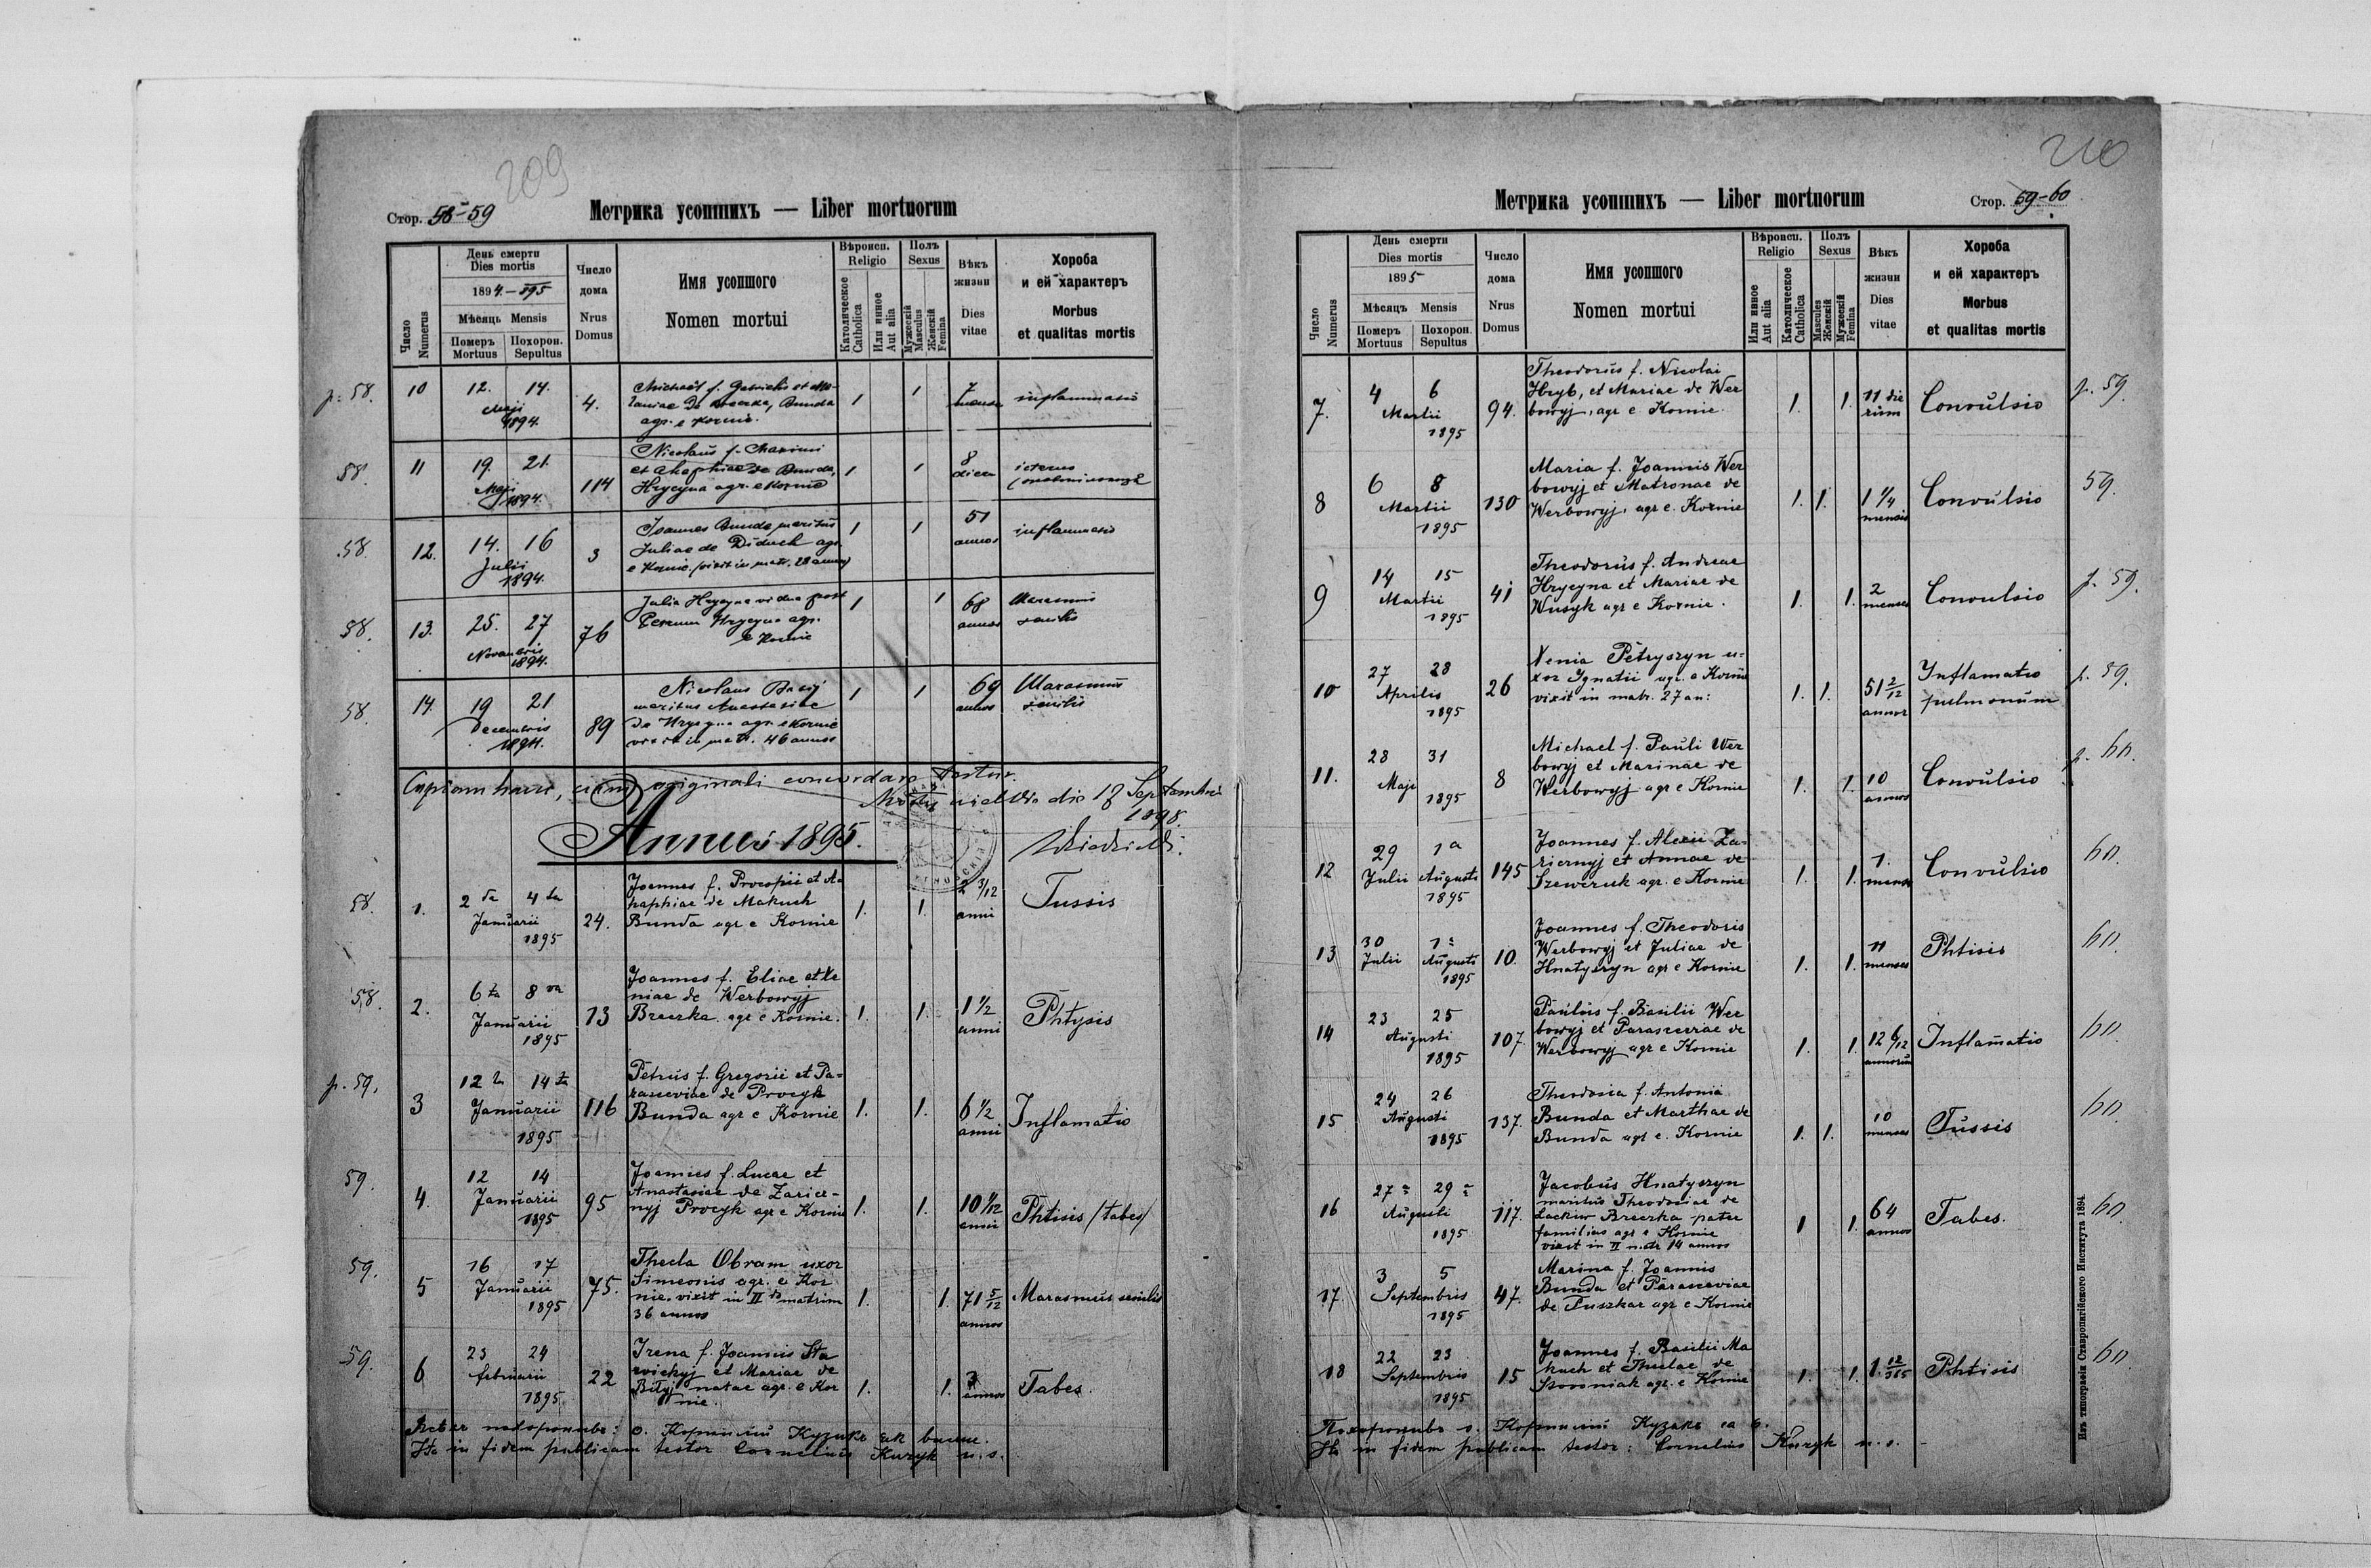 209
Стор. 58-59
Метрика усопшихъ — Liber mortuorum
Число Numerus
День смерти
Dies mortis
1894-895
Мѣсяць Mensis
Померъ Mortuus
Похорон. Sepultus
Число дома
Nrus Domus
Имя усопшого
Nomen mortui
Вѣроисп. Religio
Католическое Catholica
Или инное Aut alia
Полъ Sexus
Мужескій Masculus
Женскій Femina
Вѣкъ жизни
Dies vitae
Хороба
и ей характеръ
Morbus
et qualitas mortis
p. 58. 10 12. 14. Maji 1894. 4.
Michael f.
agr. e Kornie.
1 1 7 inflammatio
58. 11 19. 21. Maji 1894. 114
Nicolaus f. Maximi
et Ahaphiae de Bunda,
Hrycyna agr. e Kornie
1 1 8 dies icterus
58. 12. 14. 16 Julii 1894. 3
Joannes Bunda maritus
Juliae de Diduch agr.
e Kornie (vixit in matr. 28 annos)
1 1 51 annos inflammatio
58. 13. 25. 27 Novembris 1894. 76
Julia Hrycyna vidua post
Hrycyna agr.
e Kornie
1 1 68 annos Marasmus senilis
58. 14. 19 21 Decembris 1894. 89
Nicolaus
maritus Anastasiae
de Hrycyna agr. e Kornie
vixit in matr. 46 annos
1 1 69 annos Marasmus senilis
Copiam hanc, cum originali concordare testor.
die 18 Septembris
1898.
Annus 1895.
58. 1. 2 da 4 ta Januarii 1895 24.
Joannes f. Procopii et A-
haphiae de Makuch
Bunda agr e Kornie
1. 1. 2 3/12 anni Tussis
58. 2. 6 ta 8 va Januarii 1895 13
Joannes f. Eliae et Xe
niae de Werbowyj
Breczka agr e Kornie.
1. 1. 1 1/2 anni Phtysis
p. 59. 3 12 14 ta Januarii 1895 116
Petrus f. Gregorii et Pa-
rasceviae de Procyk
Bunda agr e Kornie
1. 1. 6 1/2 anni Inflamatio
59. 4. 12 14 Januarii 1895 95
Joannes f. Lucae et
Anastasiae de Zaricz-
nyj Procyk agr e Kornie
1. 1. 10 1/12 anni Phtisis /tabes/
59. 5 16 17 Januarii 1895 75.
Thecla Obram uxor
Simeonis agr. e Kor
nie. vixit in II matrim
36 annos
1. 1. 71 5/12 annos Marasmus senilis
59. 6 23 24 februarii 1895 22
Irena f. Joannis Sta
wickyj et Mariae de
Bilyj natae agr. e Kor
nie.
1. 1. 3 annos Tabes.
о. Корнилий Кузыкъ як выше.
Ita in fidem publicam testor Cornelius Kuzyk
210
Метрика усопшихъ — Liber mortuorum
Стор. 59-60
Число Numerus
День смерти
Dies mortis
1895
Мѣсяць Mensis
Померъ Mortuus
Похорон. Sepultus
Число дома
Nrus Domus
Имя усопшого
Nomen mortui
Вѣроисп. Religio
Или инное Aut alia
Католическое Catholica
Полъ Sexus
Masculus Женскій
Мужескій Femina
Вѣкъ жизни
Dies vitae
Хороба
и ей характеръ
Morbus
et qualitas mortis
7. 4 6 Martii 1895 94.
Theodorus f. Nicolai
Hryb, et Mariae de Wer
bowyj, agr e Kornie.
1. 1. 11 die rum Convulsio p. 59.
8 6 8 Martii 1895 130
Maria f. Joannis Wer
bowyj et Matronae de
Werbowyj, agr e. Kornie
1. 1. 1 1/4 mensis Convulsio 59.
9 14 15 Martii 1895 41
Theodorus f. Andreae
Hrycyna et Mariae de
Wusyk agr e Kornie.
1. 1. 2 menses Convulsio p. 59.
10 27 28 Aprilis 1895 26
Xenia Petryszyn u-
xor Ignatii agr. e Kornie
vixit in matr. 27 an:
1. 1. 51 2/12 annos Inflamatio pulmonum p. 59.
11. 28 31 Maji 1895 8
Michael f. Pauli Wer
bowyj et Marinae de
Werbowyj agr e Kornie
1. 1. 10 annos Convulsio p. 60.
12 29 Julii 1 a Augusti 1895 145
Joannes f. Alexii Za-
ricznyj et Annae de
Szewczuk agr. e Kornie
1. 1. 1. mensis Convulsio 60.
13 30 Julii 1 Augusti 1895 10.
Joannes f. Theodoris
Werbowyj et Juliae de
Hnatyszyn agr e Kornie
1. 1. 11 menses Phtisis 60.
14 23 25 Augusti 1895 107.
Paulus f. Basilii Wer
bowyj et Parasceviae de
Werbowyj agr e Kornie
1. 1. 12 6/12 annorum Inflamatio 60.
15 24 26 Augusti 1895 137.
Theodosia f. Antonii
Bunda et Marthae de
Bunda agr e. Kornie
1. 1. 10 menses Tussis 60.
16 27 29 Augusti 1895 117.
Jacobus Hnatyszyn
maritus Theodosiae de
Lackiw Breczka pater
familias agr e Kornie
vixit in II matr 14 annos
1 1. 64 annos Tabes. 60.
17. 3 5 Septembris 1895 47.
Marina f. Joannis
Bunda et Parasceviae
de Puszkar agr e Kornie
18 22 23 Septembris 1895 15
Joannes f. Basilii Ma
kuch et Theclae de
agr. e Kornie
1. 1. 1. 12/365 Phtisis 60.
Похоронивъ о. Корнилий Кузыкъ
Ita in fidem publicam testor: Cornelius Kuzyk
Изъ типографіи Ставропигійского Института 1894.